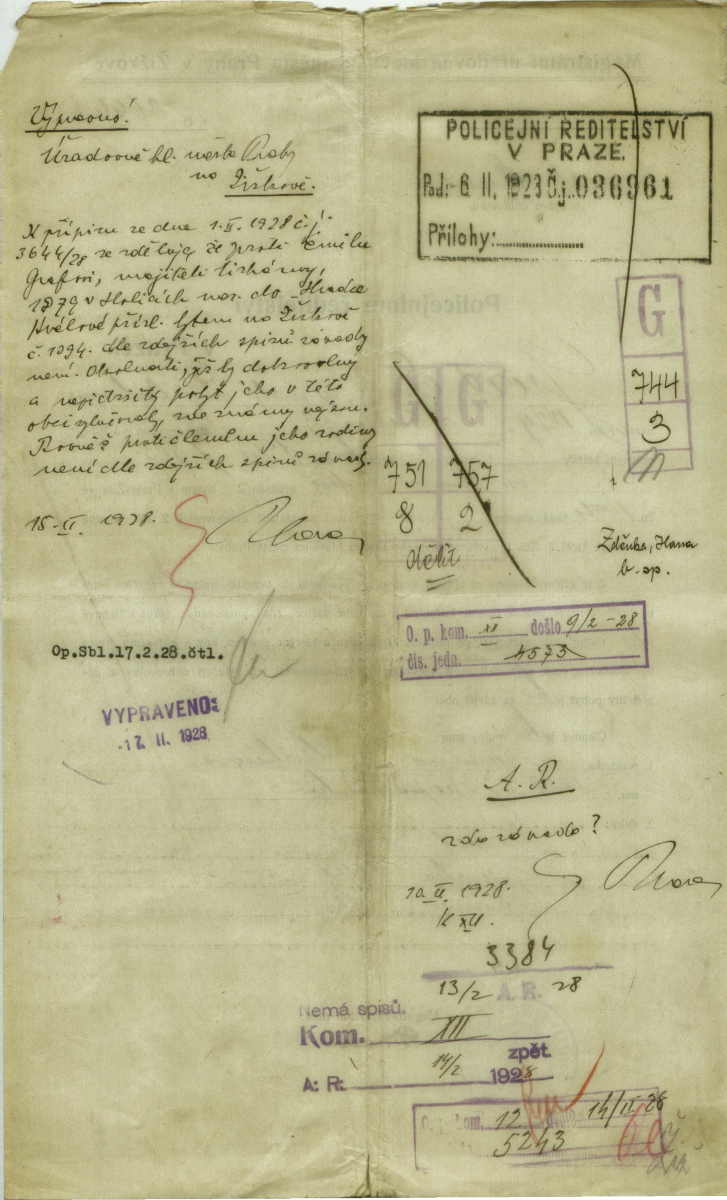 Úřadovně hl. města Prahy
na Žižkově.
K přípisu ze dne 1.II.1928 č.j.
3644/28 se sděluje že proti Emilu
Grafovi, majiteli tiskárny,
1879 v Holicích nar. do Hradce
Králové přísl. bytem na Žižkově
č. 1294. dle zdejších spisů závady
není. Okolnosti, jež by dobrovolný
a nepřetržitý pobyt jeho v této
obci vylučovaly, zde známy nejsou.
Rovněž proti členům jeho rodiny
není dle zdejších spisů závady.
15.II.1928.
Op.Sbl.17.2.28.čtl.
VYPRAVENO:
17. II. 1928
POLICEJNÍ ŘEDITELSTVÍ
V PRAZE.
Pod: 6 II. 1923 Čj. 036961
Přílohy:
G
744
3
751 757
8 2
Zdeňka, Hana
b. op.
O. p. kom. XI došlo 9/2 -28
čís. jedn. 4573
A. R.
zda závada?
10 II 1928.
K XII.
3384
13/2 A. R. 28
Nemá spisů.
Kom. XII
zpět.
A: R: 14/2 1928
12 14/II 28
5243